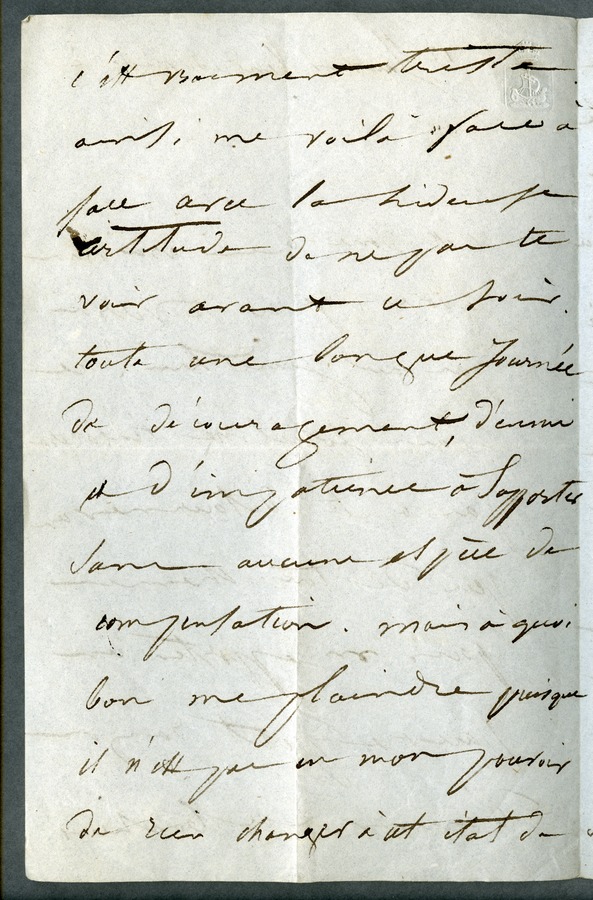 c'est vraiment triste
ainsi, me voilà face à
face avec la hideuse
certitude de ne pas te
voir avant ce soir.
toute une longue journée
de découragement, d'ennui
et d'impatience à supporter
sans aucune espèce de
compensation. mais à quoi
bon me plaindre puisque
il n'est pas en mon pouvoir
de rien changer à cet état de